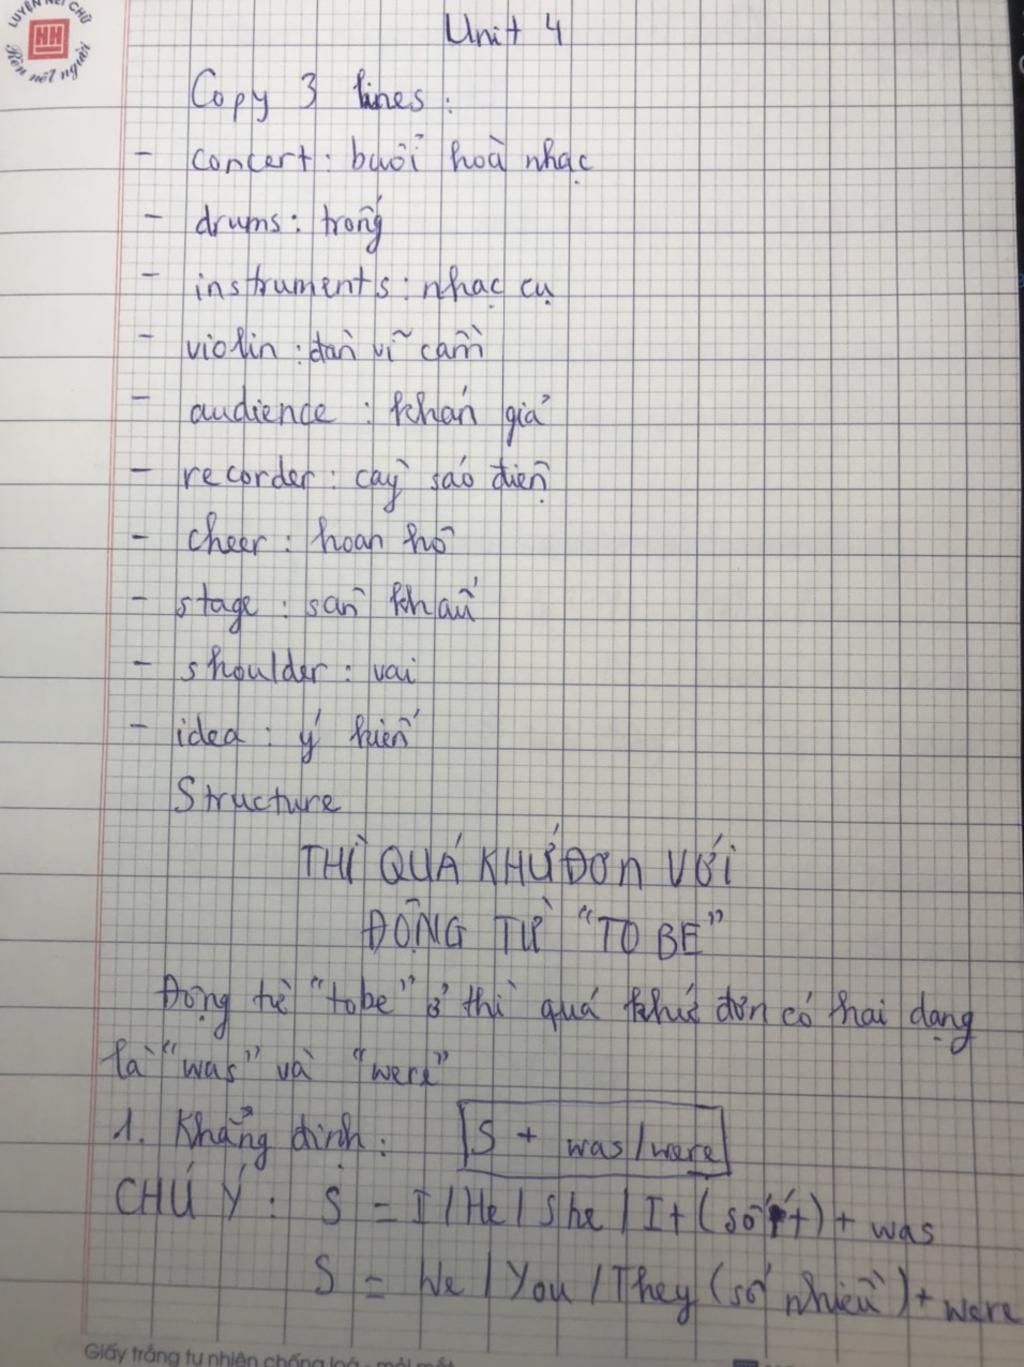 LUYỆN NÉT CHỮ
Rèn nết người
Unit 4
Copy 3 lines:
- concert: buổi hoà nhạc
- drums: trống
- instruments: nhạc cụ
- violin: đàn vĩ cầm
- audience: khán giả
- recorder: cây sáo điện
- cheer: hoan hô
- stage: sân khấu
- shoulder: vai
- idea: ý kiến
Structure
THÌ QUÁ KHỨ ĐƠN VỚI
ĐỘNG TỪ "TO BE"
Động từ "tobe" ở thì quá khứ đơn có hai dạng
là "was" và "were"
1. Khẳng định: S + was/were
CHÚ Ý: S = I/He/She/It (số ít) + was
S = We/You/They (số nhiều) + were
Giấy trắng tự nhiên chống loá - mỏi mắt